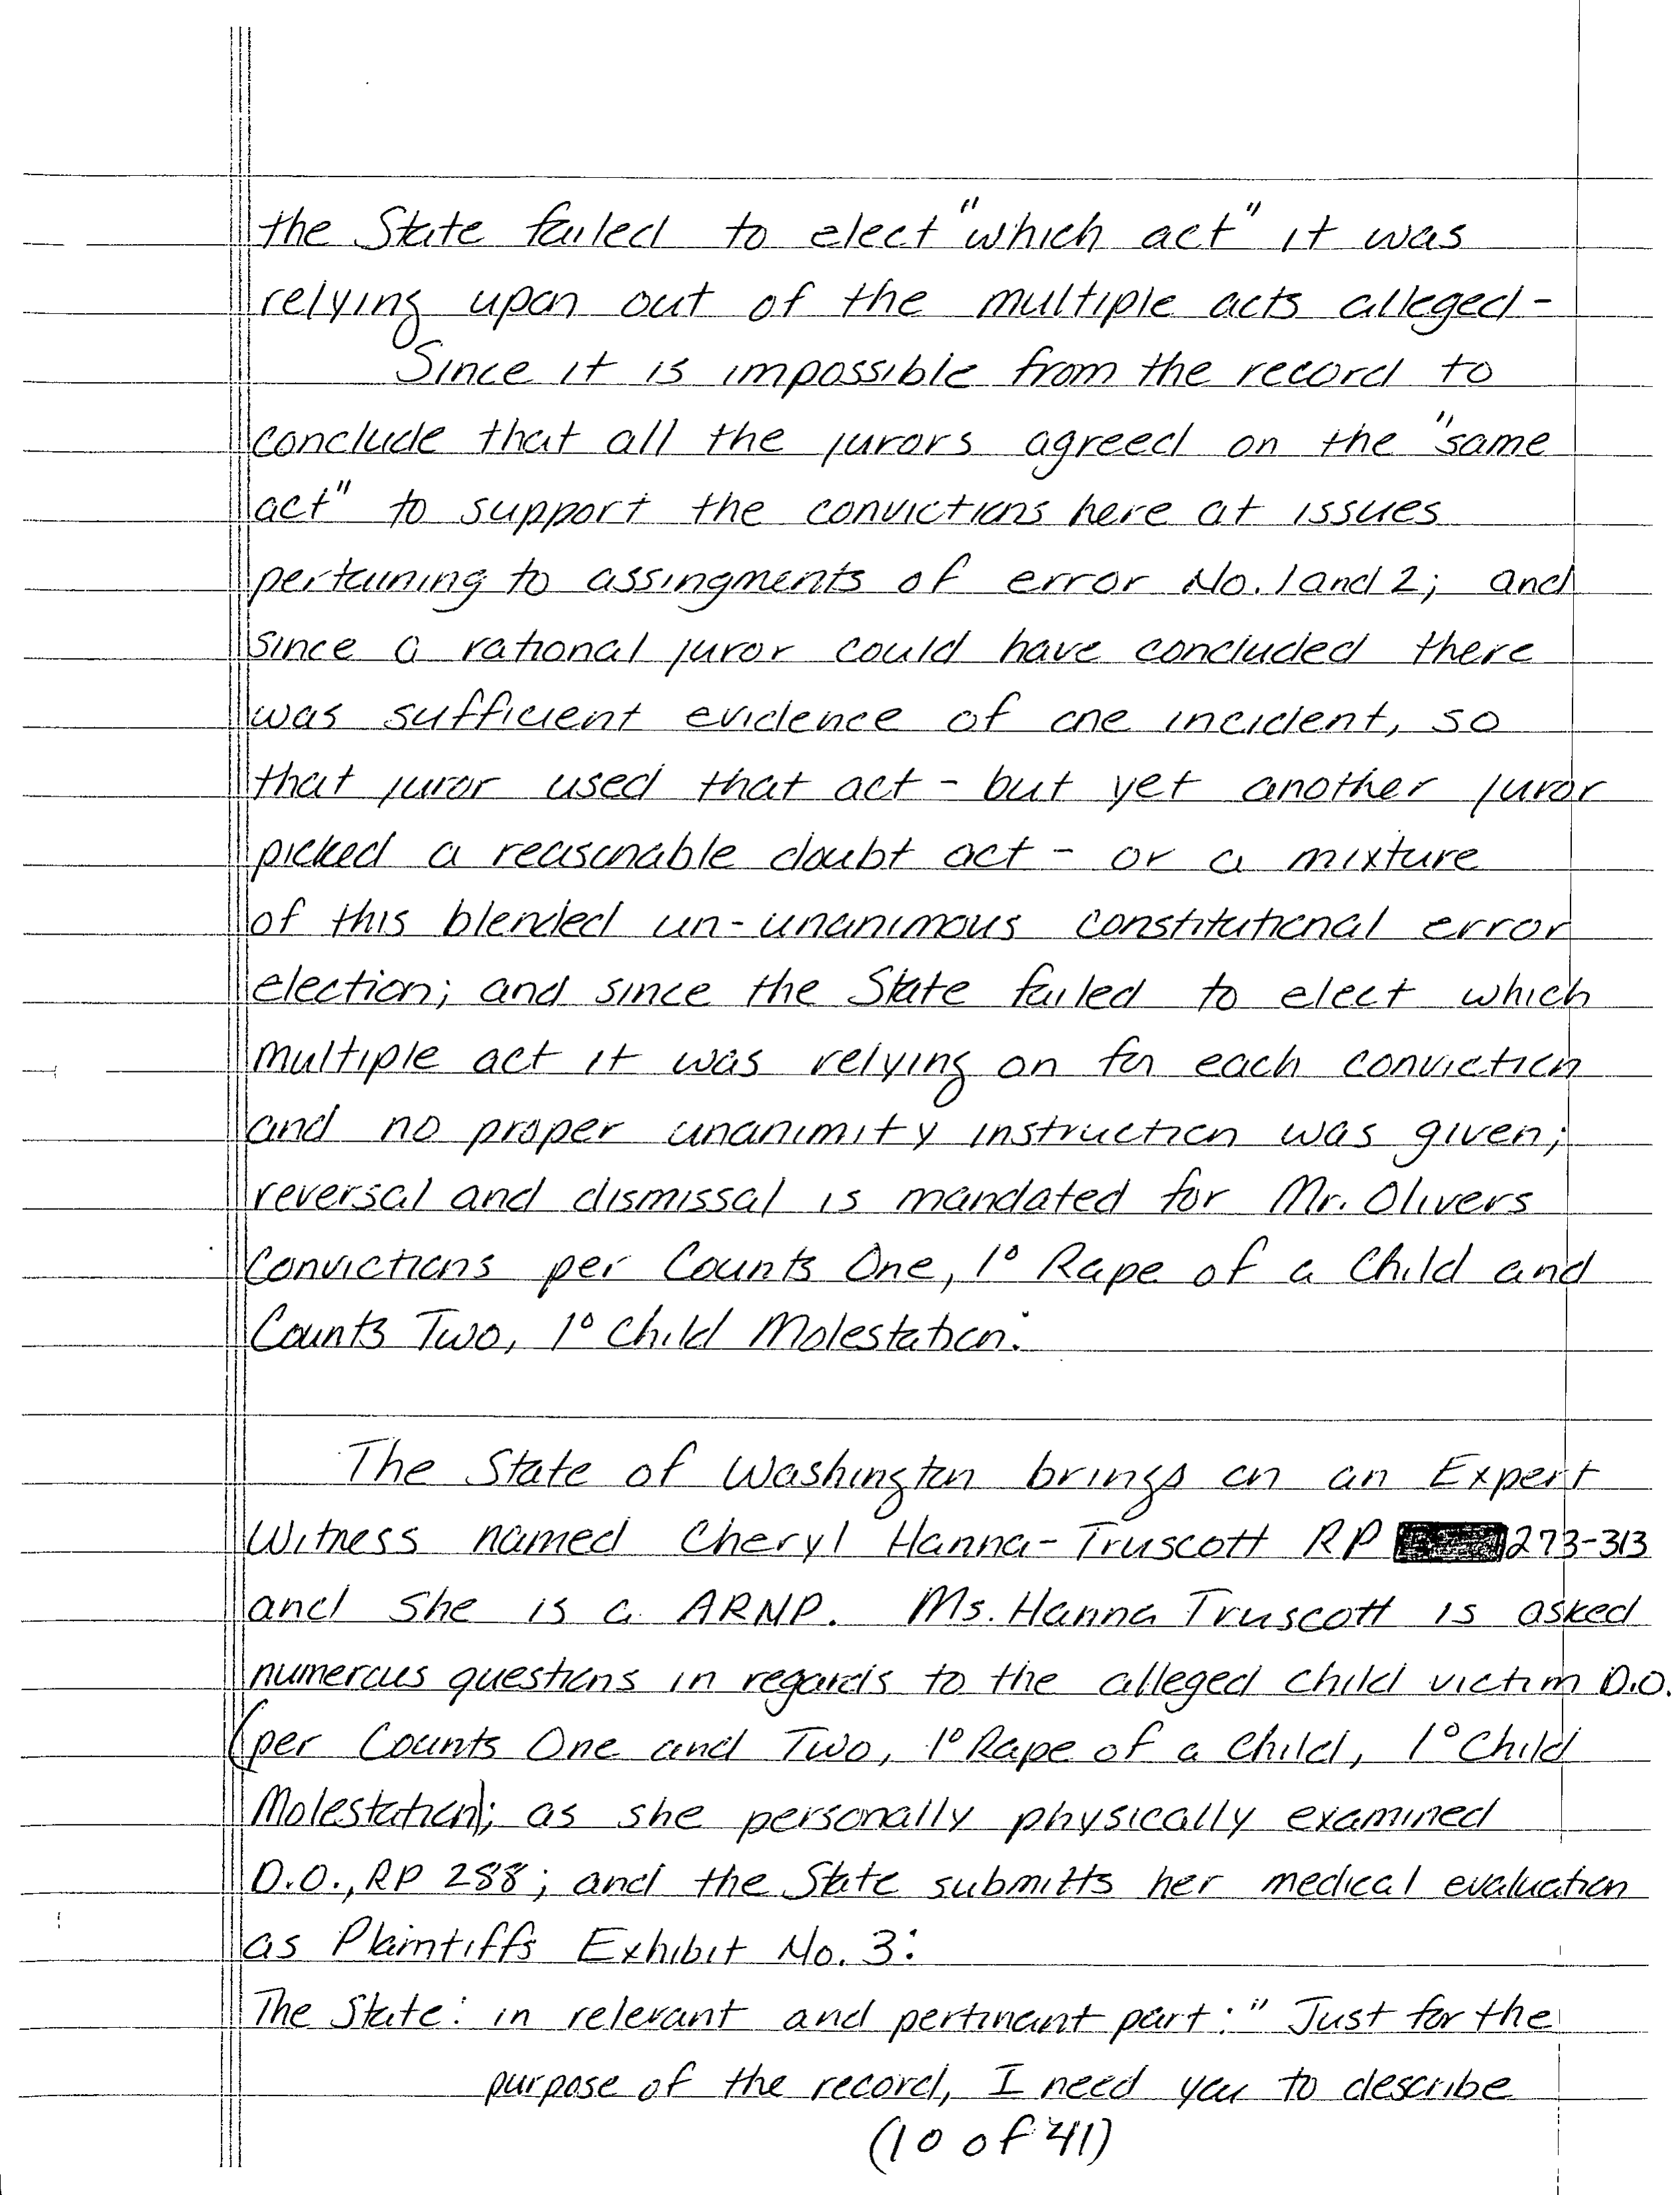 the State failed to elect "which act" it was
relying upon out of the multiple acts alleged-
Since it is impossible from the record to
conclude that all the jurors agreed on the "same
act" to support the convictions here at issues
pertaining to assingments of error No. 1 and 2; and
since a rational juror could have concluded there
was sufficient evidence of one incident, so
that juror used that act - but yet another juror
picked a reasonable doubt act - or a mixture
of this blended un-unanimous constitutional error
election; and since the State failed to elect which
multiple act it was relying on for each conviction
and no proper unanimity instruction was given;
reversal and dismissal is mandated for Mr. Olivers
Convictions per Counts One, 1° Rape of a Child and
Counts Two, 1° Child Molestation.
The State of Washington brings on an Expert
Witness named Cheryl Hanna-Truscott RP 273-313
and she is a ARNP. Ms. Hanna Truscott is asked
numerous questions in regards to the alleged child victim D.O.
(per Counts One and Two, 1° Rape of a Child, 1° Child
Molestation); as she personally physically examined
D.O., RP 288; and the State submitts her medical evaluation
as Plaintiffs Exhibit No. 3:
The State: in relevant and pertinant part: "Just for the
purpose of the record, I need you to describe
(10 of 41)